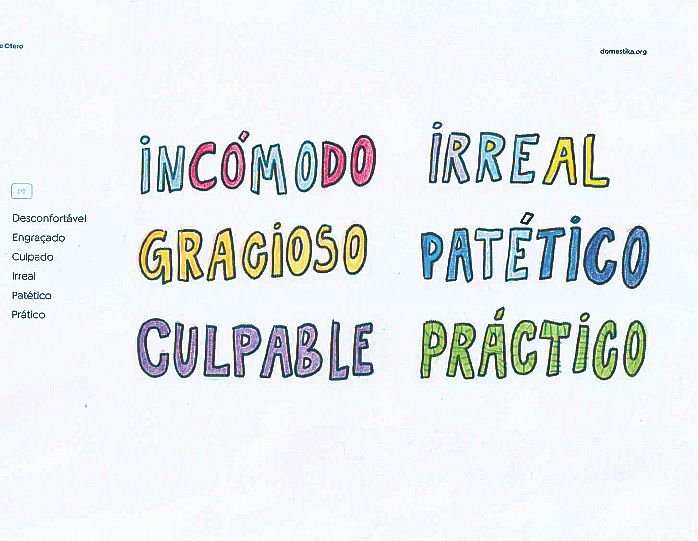 e Otero
domestika.org
PT
Desconfortável
Engraçado
Culpado
Irreal
Patético
Prático
INCÓMODO
GRACIOSO
CULPABLE
IRREAL
PATÉTICO
PRÁCTICO